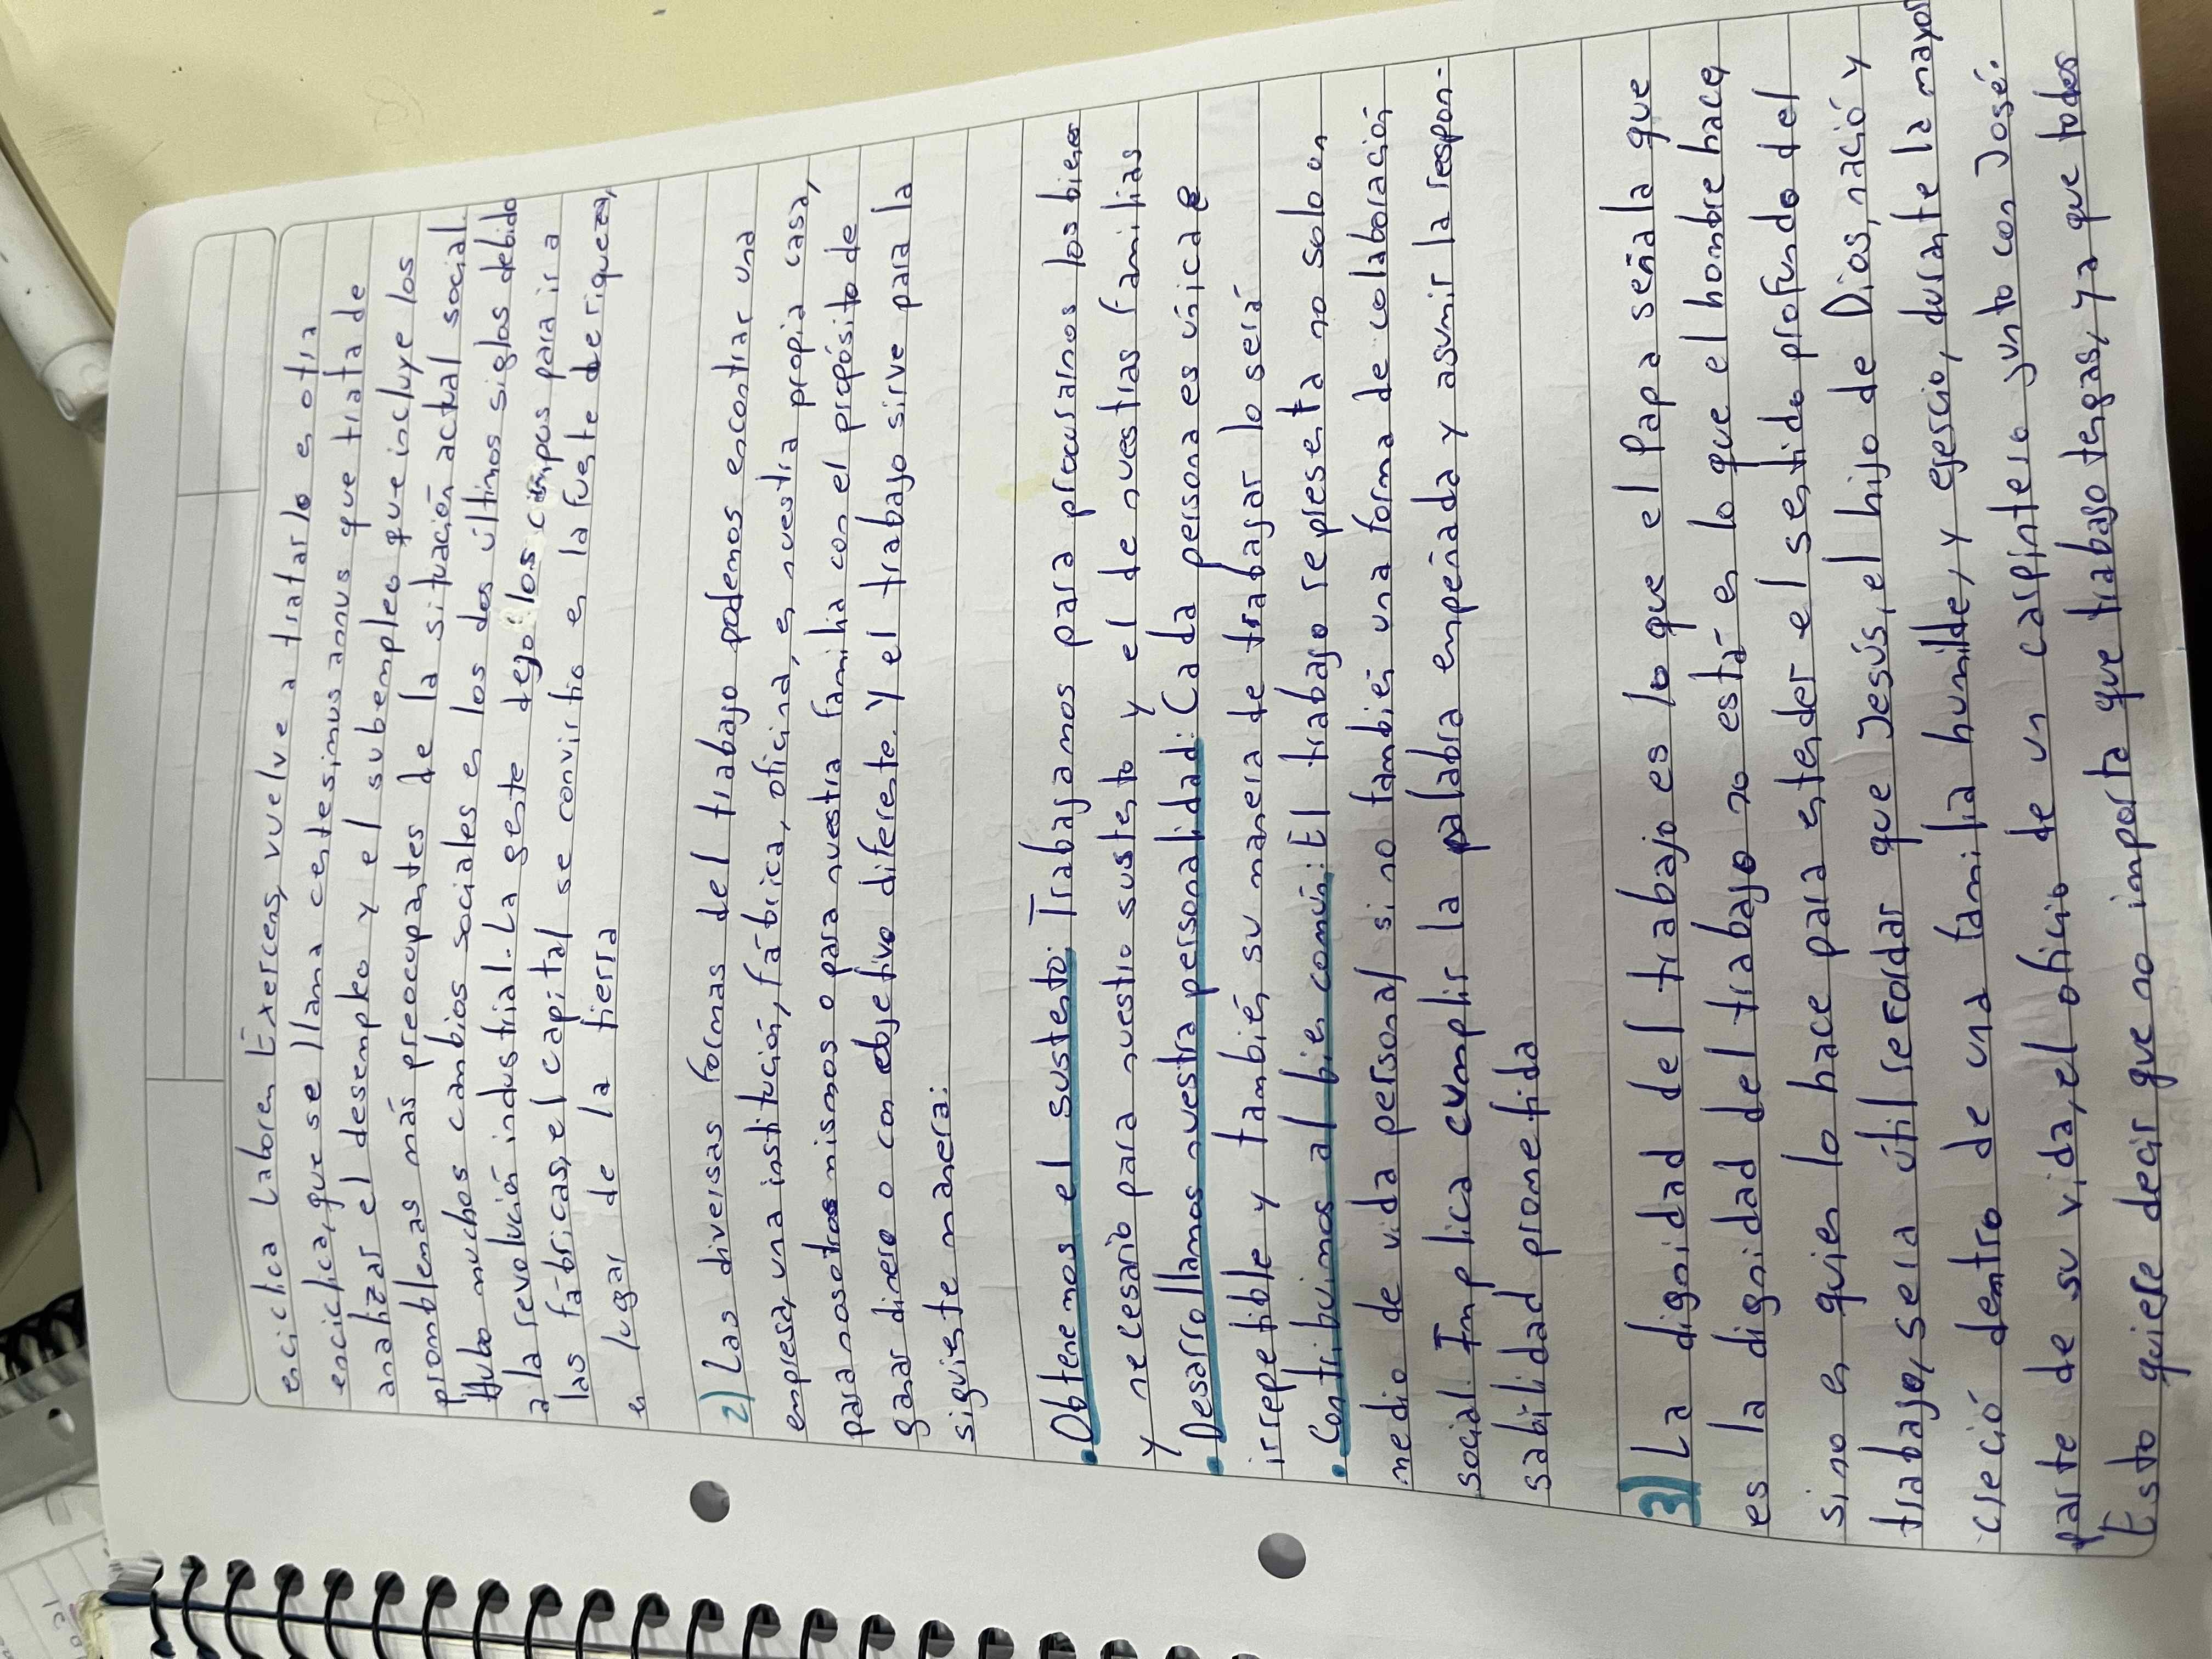 enciclica Laboren Exercens, vuelve a tratarlo en otra
enciclica, que se llama centesimus annus que trata de
analizar el desempleo y el subempleo que incluye los
promblemas más preocupantes de la situación actual social.
Hubo muchos cambios sociales en los dos últimos siglos debido
a la revolución industrial. La gente dejo los campos para ir a
las fabricas, el capital se convirtio en la fuente de riqueza,
en lugar de la tierra
2) Las diversas formas del trabajo podemos encontrar una
empresa, una institución, fábrica, oficina, en nuestra propia casa,
para nosotros mismos o para nuestra familia con el propósito de
ganar dinero o con objetivo diferente. Y el trabajo sirve para la
siguiente manera:
• Obtenemos el sustento: Trabajamos para procurarnos los bienes
y necesario para nuestro sustento y el de nuestras familias
• Desarrollamos nuestra personalidad: Cada persona es única e
irrepetible y también su manera de trabajar lo será
• Contribuimos al bien común: El trabajo representa no solo un
medio de vida personal si no también una forma de colaboración
social. Implica cumplir la palabra empeñada y asumir la respon-
sabilidad prometida
3) La dignidad del trabajo es lo que el Papa señala que
es la dignidad del trabajo no está en lo que el hombre hace,
sino en quien lo hace para entender el sentido profundo del
trabajo, sera útil recordar que Jesús, el hijo de Dios, nació y
creció dentro de una familia humilde, y ejercio, durante la mayor
parte de su vida, el oficio de un carpintero junto con José.
Esto quiere decir que no importa que trabajo tengas, ya que todos